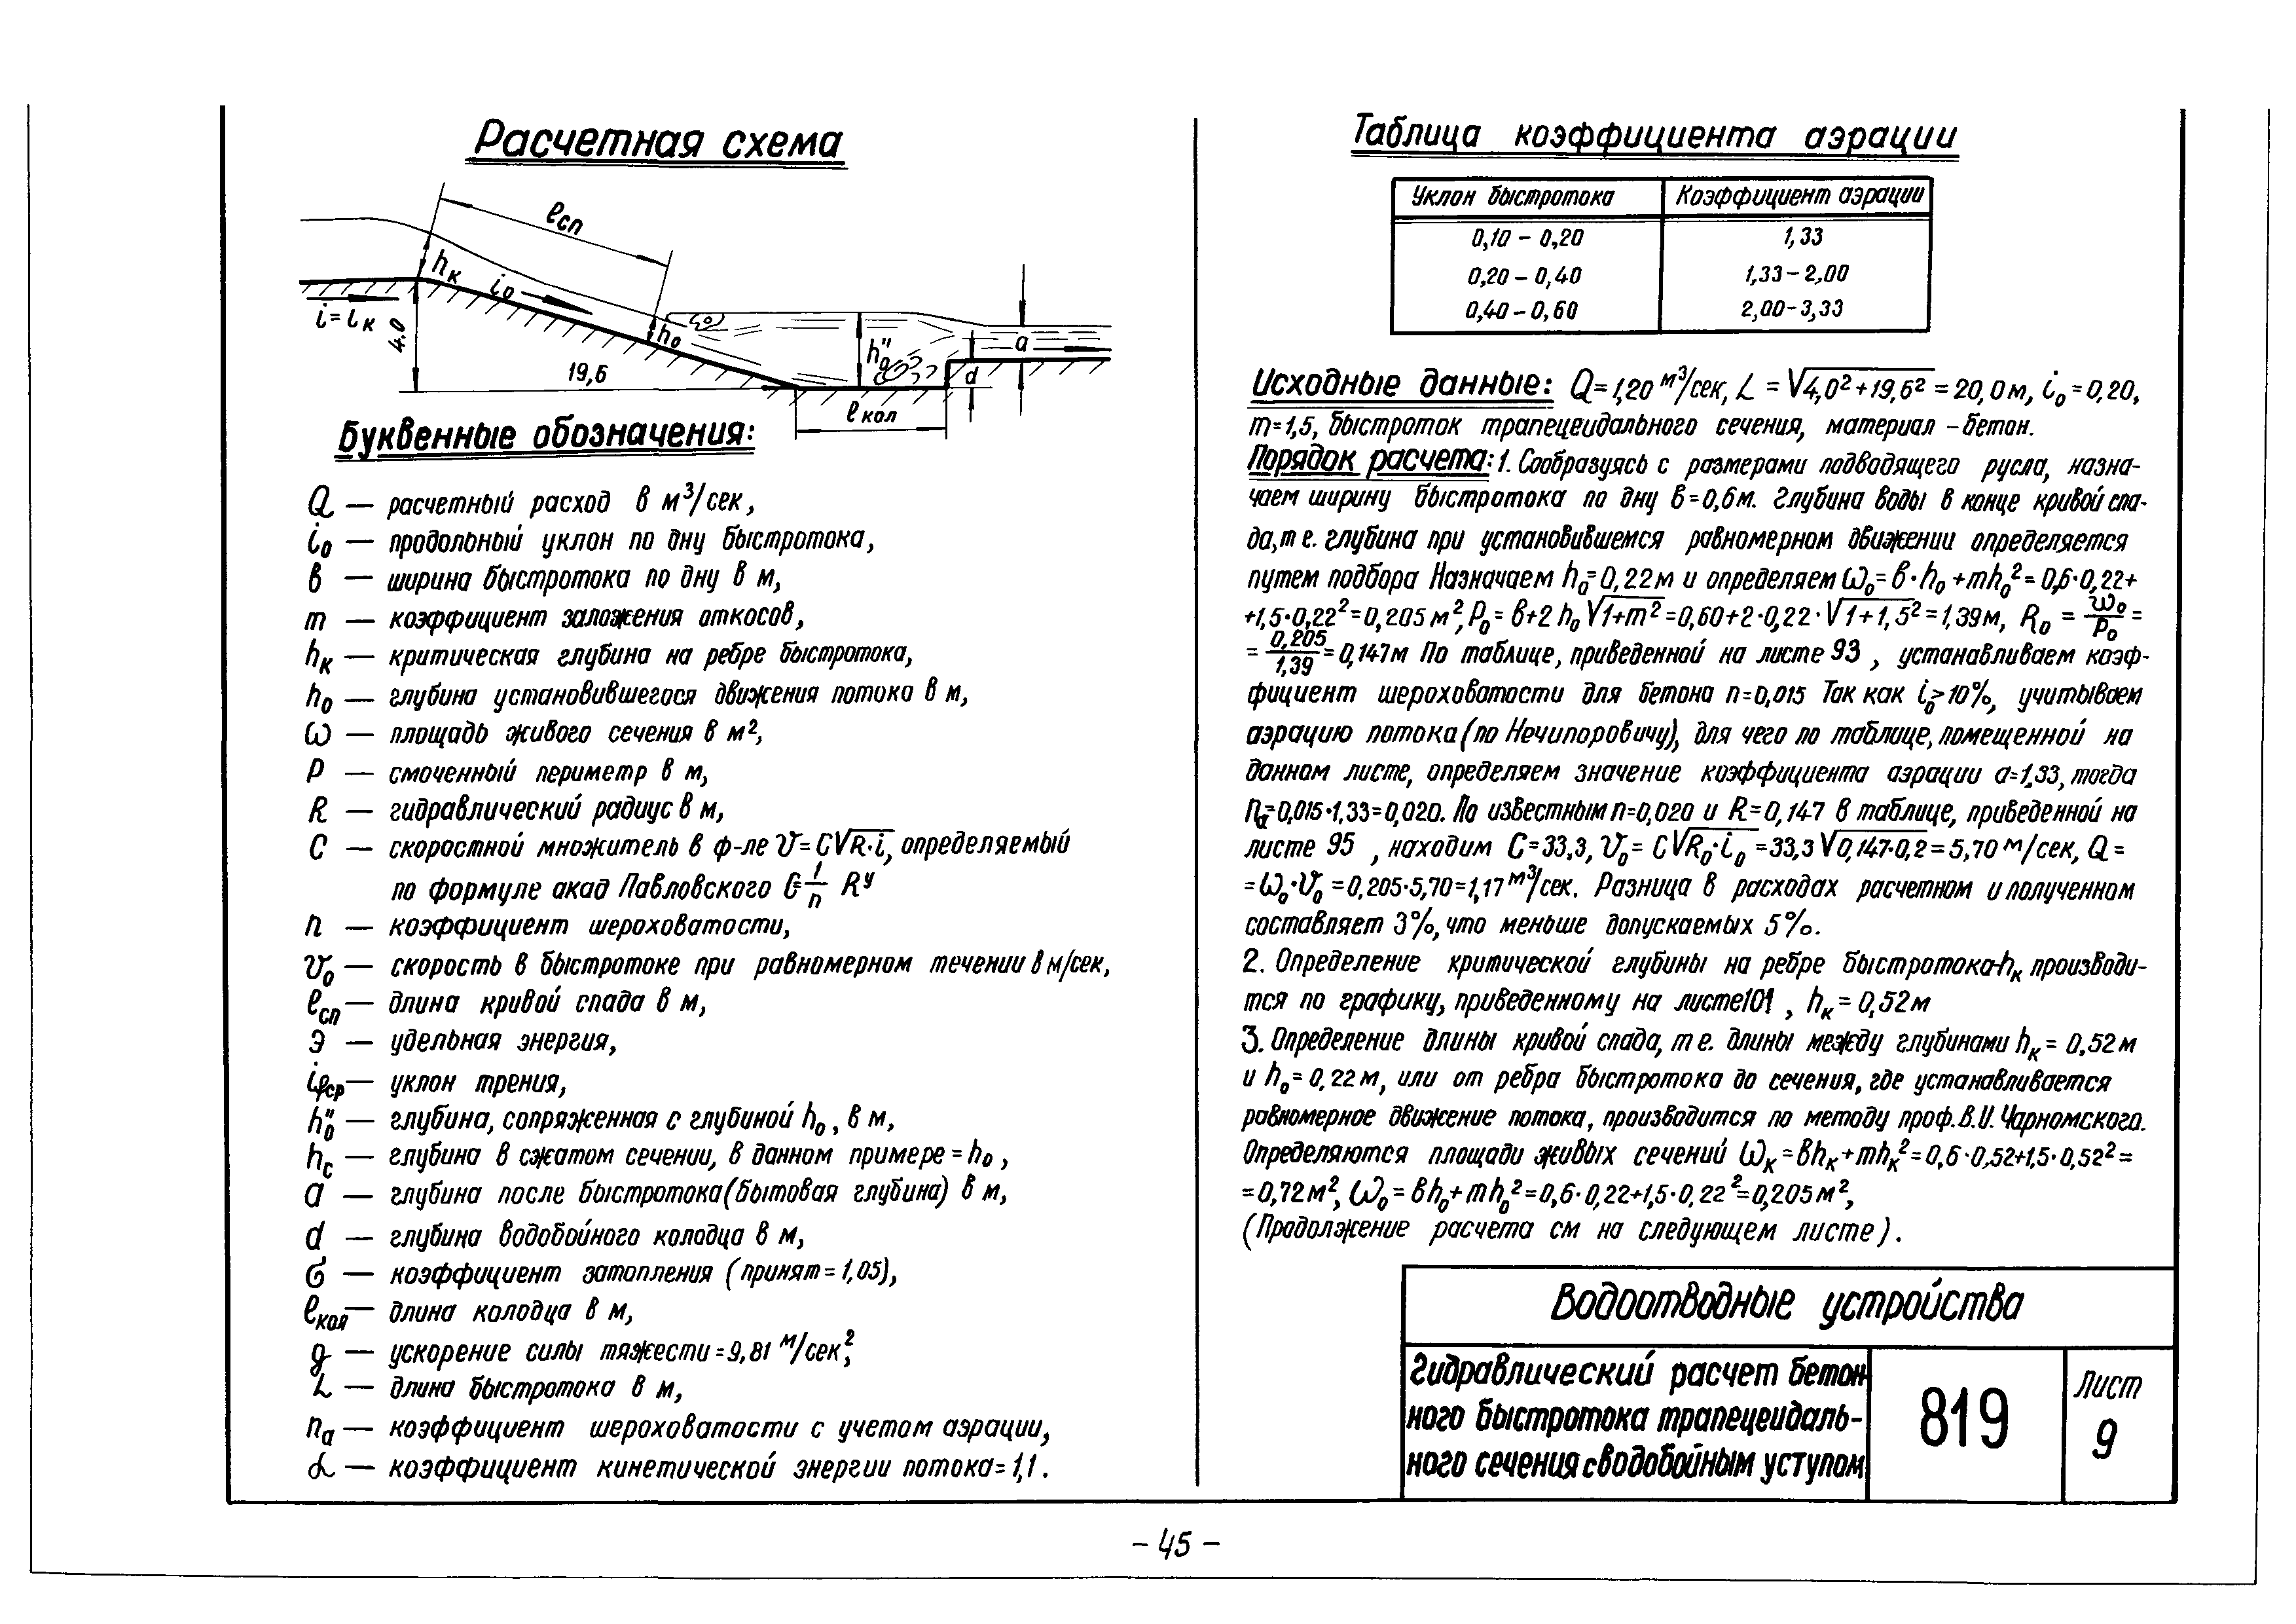 Расчетная схема
ℓсп
hк
i₀
i=iк
4.0
h₀
19,6
h₀"
a
d
ℓкол
Буквенные обозначения:
Q — расчетный расход в м³/сек,
i₀ — продольный уклон по дну быстротока,
в — ширина быстротока по дну в м,
m — коэффициент заложения откосов,
hк — критическая глубина на ребре быстротока,
h₀ — глубина установившегося движения потока в м,
ω — площадь живого сечения в м²,
P — смоченный периметр в м,
R — гидравлический радиус в м,
C — скоростной множитель в ф-ле V=C√R·i, определяемый
по формуле акад Павловского C=1/n Rʸ
n — коэффициент шероховатости,
V₀ — скорость в быстротоке при равномерном течении в м/сек,
ℓсп — длина кривой спада в м,
Э — удельная энергия,
iφср — уклон трения,
h₀" — глубина, сопряженная с глубиной h₀, в м,
hс — глубина в сжатом сечении, в данном примере = h₀,
a — глубина после быстротока (бытовая глубина) в м,
d — глубина водобойного колодца в м,
σ — коэффициент затопления (принят = 1,05),
ℓкол — длина колодца в м,
g — ускорение силы тяжести = 9,81 м/сек²,
L — длина быстротока в м,
nа — коэффициент шероховатости с учетом аэрации,
α — коэффициент кинетической энергии потока = 1,1.
Таблица коэффициента аэрации
Уклон быстротока Коэффициент аэрации
0,10 - 0,20 1,33
0,20 - 0,40 1,33-2,00
0,40 - 0,60 2,00-3,33
Исходные данные: Q=1,20 м³/сек, L = √4,0²+19,6² = 20,0м, i₀=0,20,
m=1,5, быстроток трапецеидального сечения, материал - бетон.
Порядок расчета: 1. Сообразуясь с размерами подводящего русла, назна-
чаем ширину быстротока по дну в=0,6м. Глубина воды в конце кривой спа-
да, т е. глубина при установившемся равномерном движении определяется
путем подбора Назначаем h₀=0,22м и определяем ω₀=в·h₀+mh₀²=0,6·0,22+
+1,5·0,22²=0,205м², P₀=в+2h₀√1+m²=0,60+2·0,22·√1+1,5²=1,39м, R₀ = ω₀/P₀ =
= 0,205/1,39 = 0,147м По таблице, приведенной на листе 93, устанавливаем коэф-
фициент шероховатости для бетона n=0,015 Так как i₀>10%, учитываем
аэрацию потока (по Нечипоровичу), для чего по таблице, помещенной на
данном листе, определяем значение коэффициента аэрации a=1,33, тогда
nа=0,015·1,33=0,020. По известным n=0,020 и R=0,147 в таблице, приведенной на
листе 95, находим C=33,3, V₀=C√R₀·i₀=33,3√0,147·0,2=5,70 м/сек, Q=
=ω₀·V₀=0,205·5,70=1,17 м³/сек. Разница в расходах расчетном и полученном
составляет 3%, что меньше допускаемых 5%.
2. Определение критической глубины на ребре быстротока-hк производи-
тся по графику, приведенному на листе 101, hк=0,52м
3. Определение длины кривой спада, т е. длины между глубинами hк=0.52м
и h₀=0,22м, или от ребра быстротока до сечения, где устанавливается
равномерное движение потока, производится по методу проф. В.И. Чарномского.
Определяются площади живых сечений ωк=вhк+mhк²=0,6·0,52+1,5·0,52²=
=0,72м², ω₀=вh₀+mh₀²=0,6·0,22+1,5·0,22²=0,205м²,
(Продолжение расчета см на следующем листе).
Водоотводные устройства
Гидравлический расчет бетон-
ного быстротока трапецеидаль-
ного сечения с водобойным уступом
819
Лист
9
- 45 -